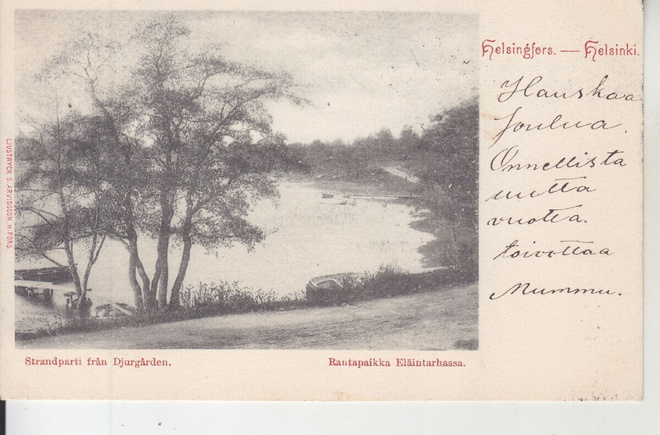 Helsingfors. — Helsinki.
Hauskaa
Joulua.
Onnellista
uutta
vuotta.
toivottaa
Mummu.
LJUSTRYCK G. ARVIDSSON H.FORS
Strandparti från Djurgården.
Rantapaikka Eläintarhassa.